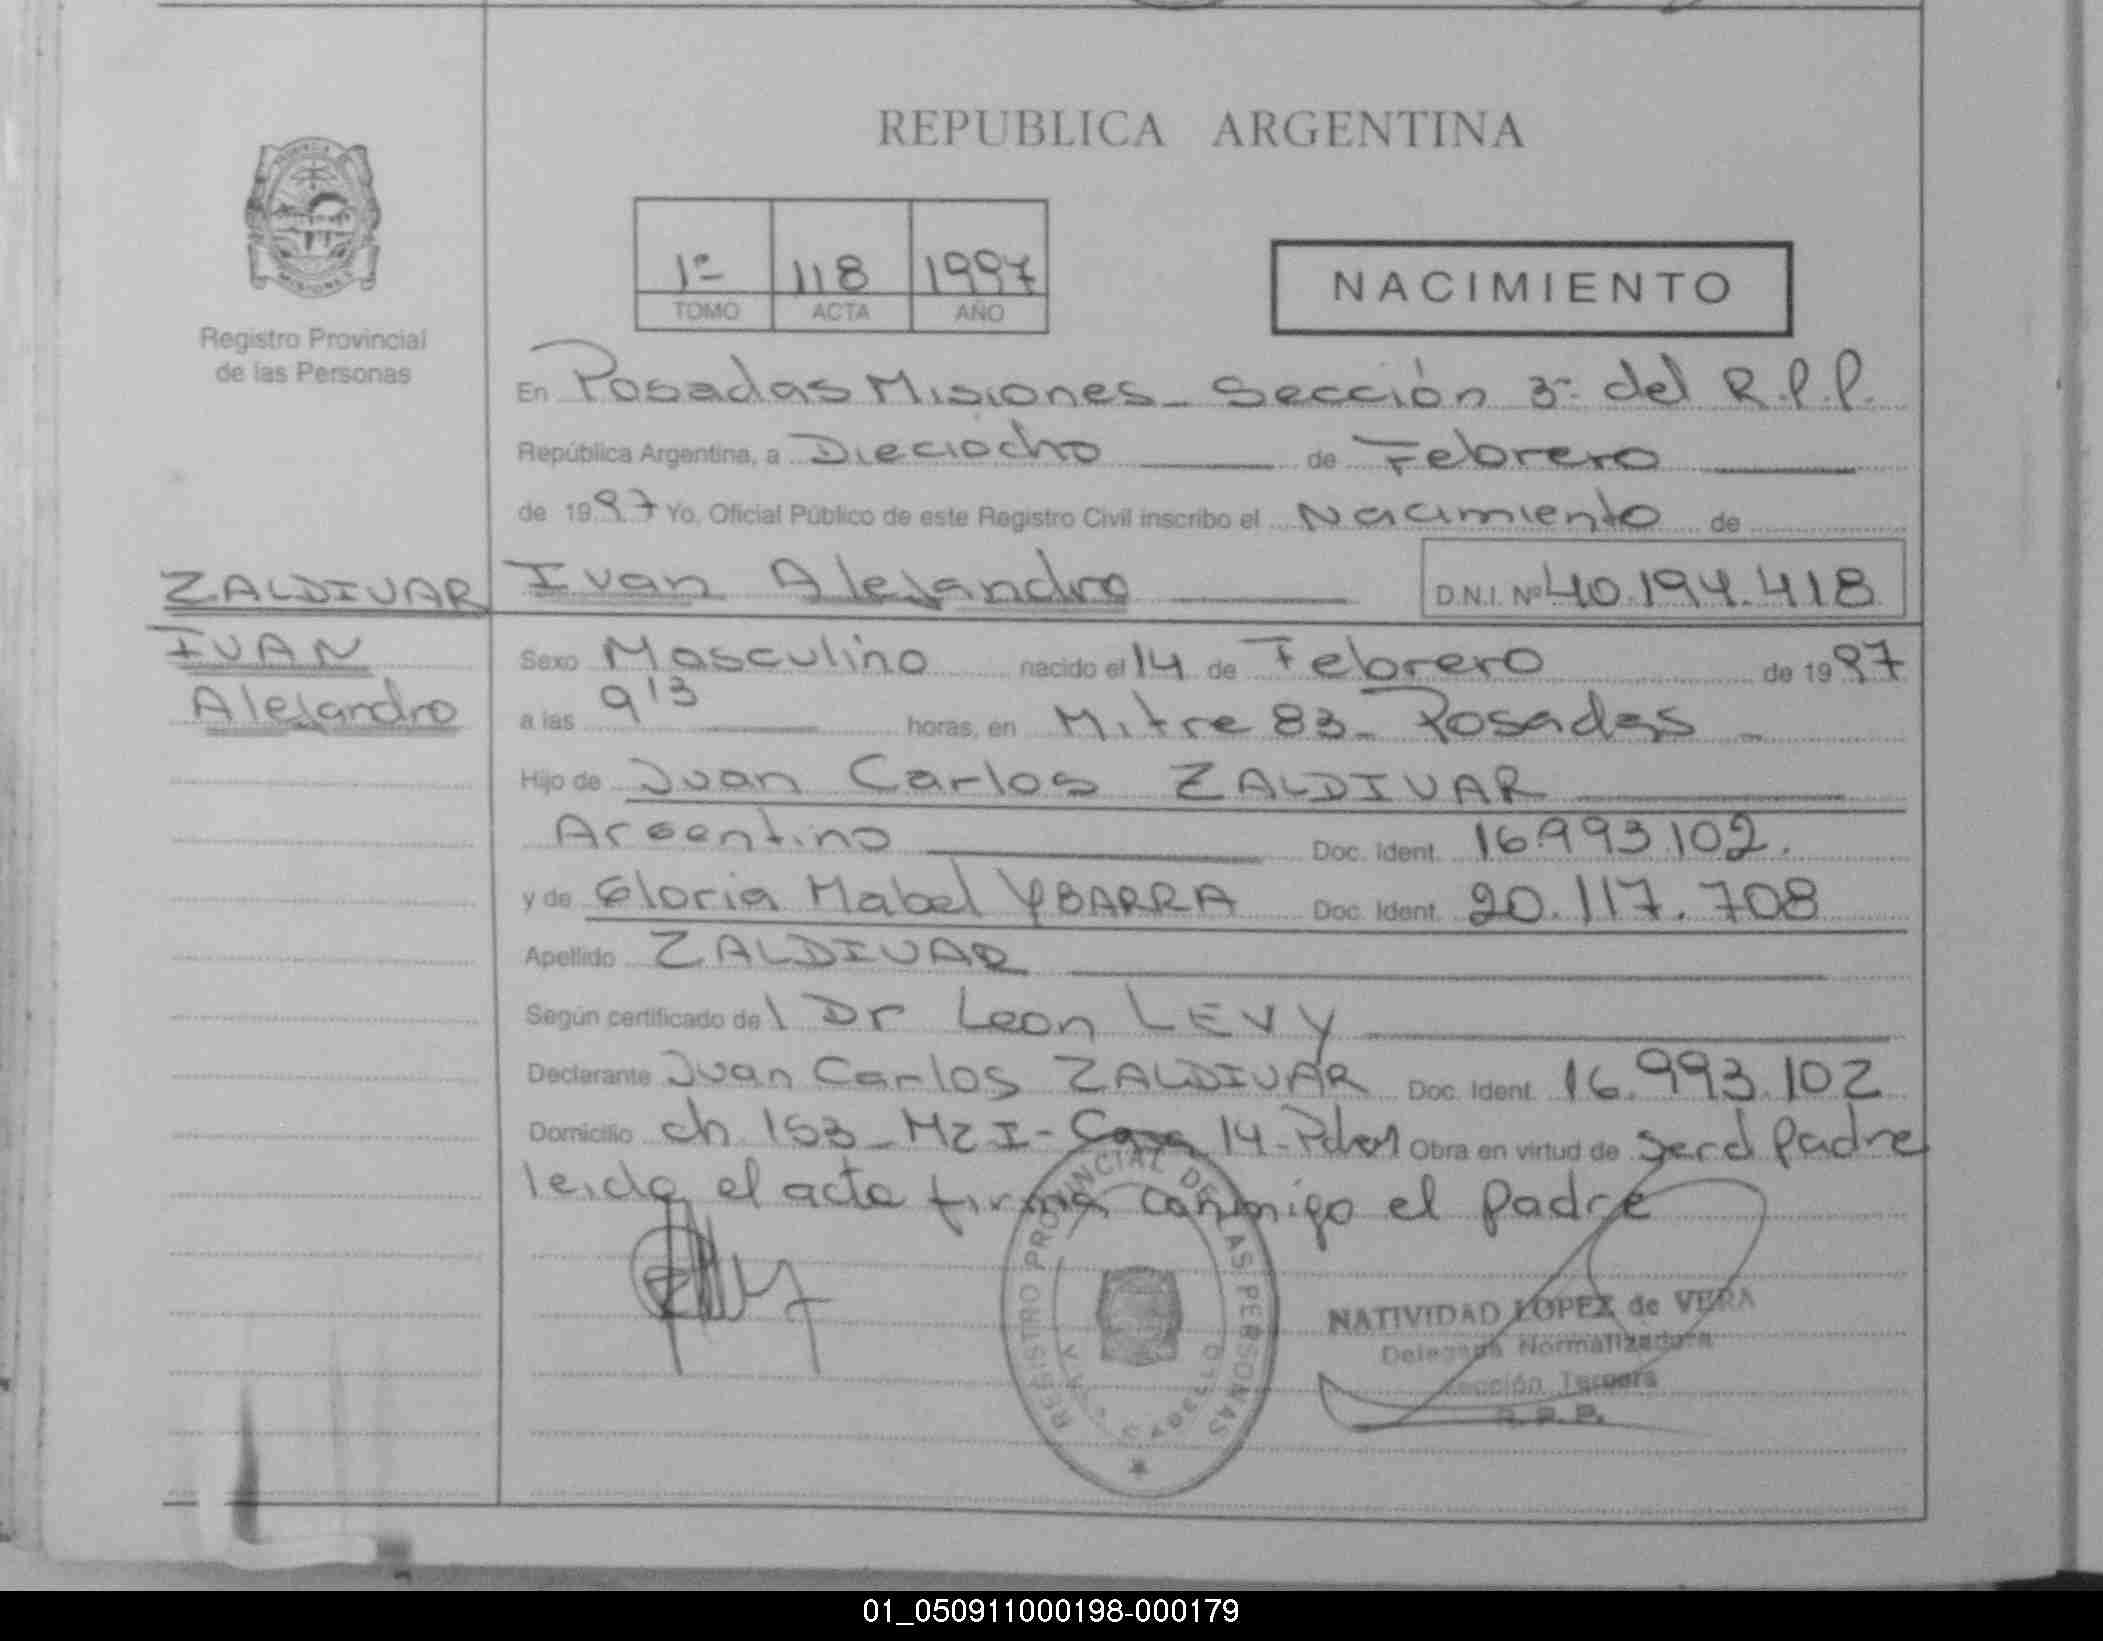 REPUBLICA ARGENTINA
1º 118 1997
TOMO ACTA AÑO
NACIMIENTO
Registro Provincial
de las Personas
En Posadas Misiones - Sección 3ª del R.P.P.
República Argentina, a Dieciocho de Febrero
de 1997 Yo, Oficial Público de este Registro Civil inscribo el Nacimiento de
ZALDIVAR Ivan Alejandro D.N.I. Nº 40.194.418
IVAN
Alejandro
Sexo Masculino nacido el 14 de Febrero de 1997
a las 9 13 horas, en Mitre 83 - Posadas -
Hijo de Juan Carlos ZALDIVAR
Argentino Doc. Ident. 16.993.102.
y de Gloria Mabel YBARRA Doc. Ident. 20.117.708
Apellido ZALDIVAR
Según certificado del Dr Leon LEVY
Declarante Juan Carlos ZALDIVAR Doc. Ident. 16.993.102
Domicilio ch 153 - Mz I - Casa 14 - Obra en virtud de ser el Padre
leida el acta firma conmigo el padre
REGISTRO PROVINCIAL DE LAS PERSONAS
NATIVIDAD LOPEZ de VERA
Delegada Normalizadora
Sección Tercera
R.P.P.
01_050911000198-000179